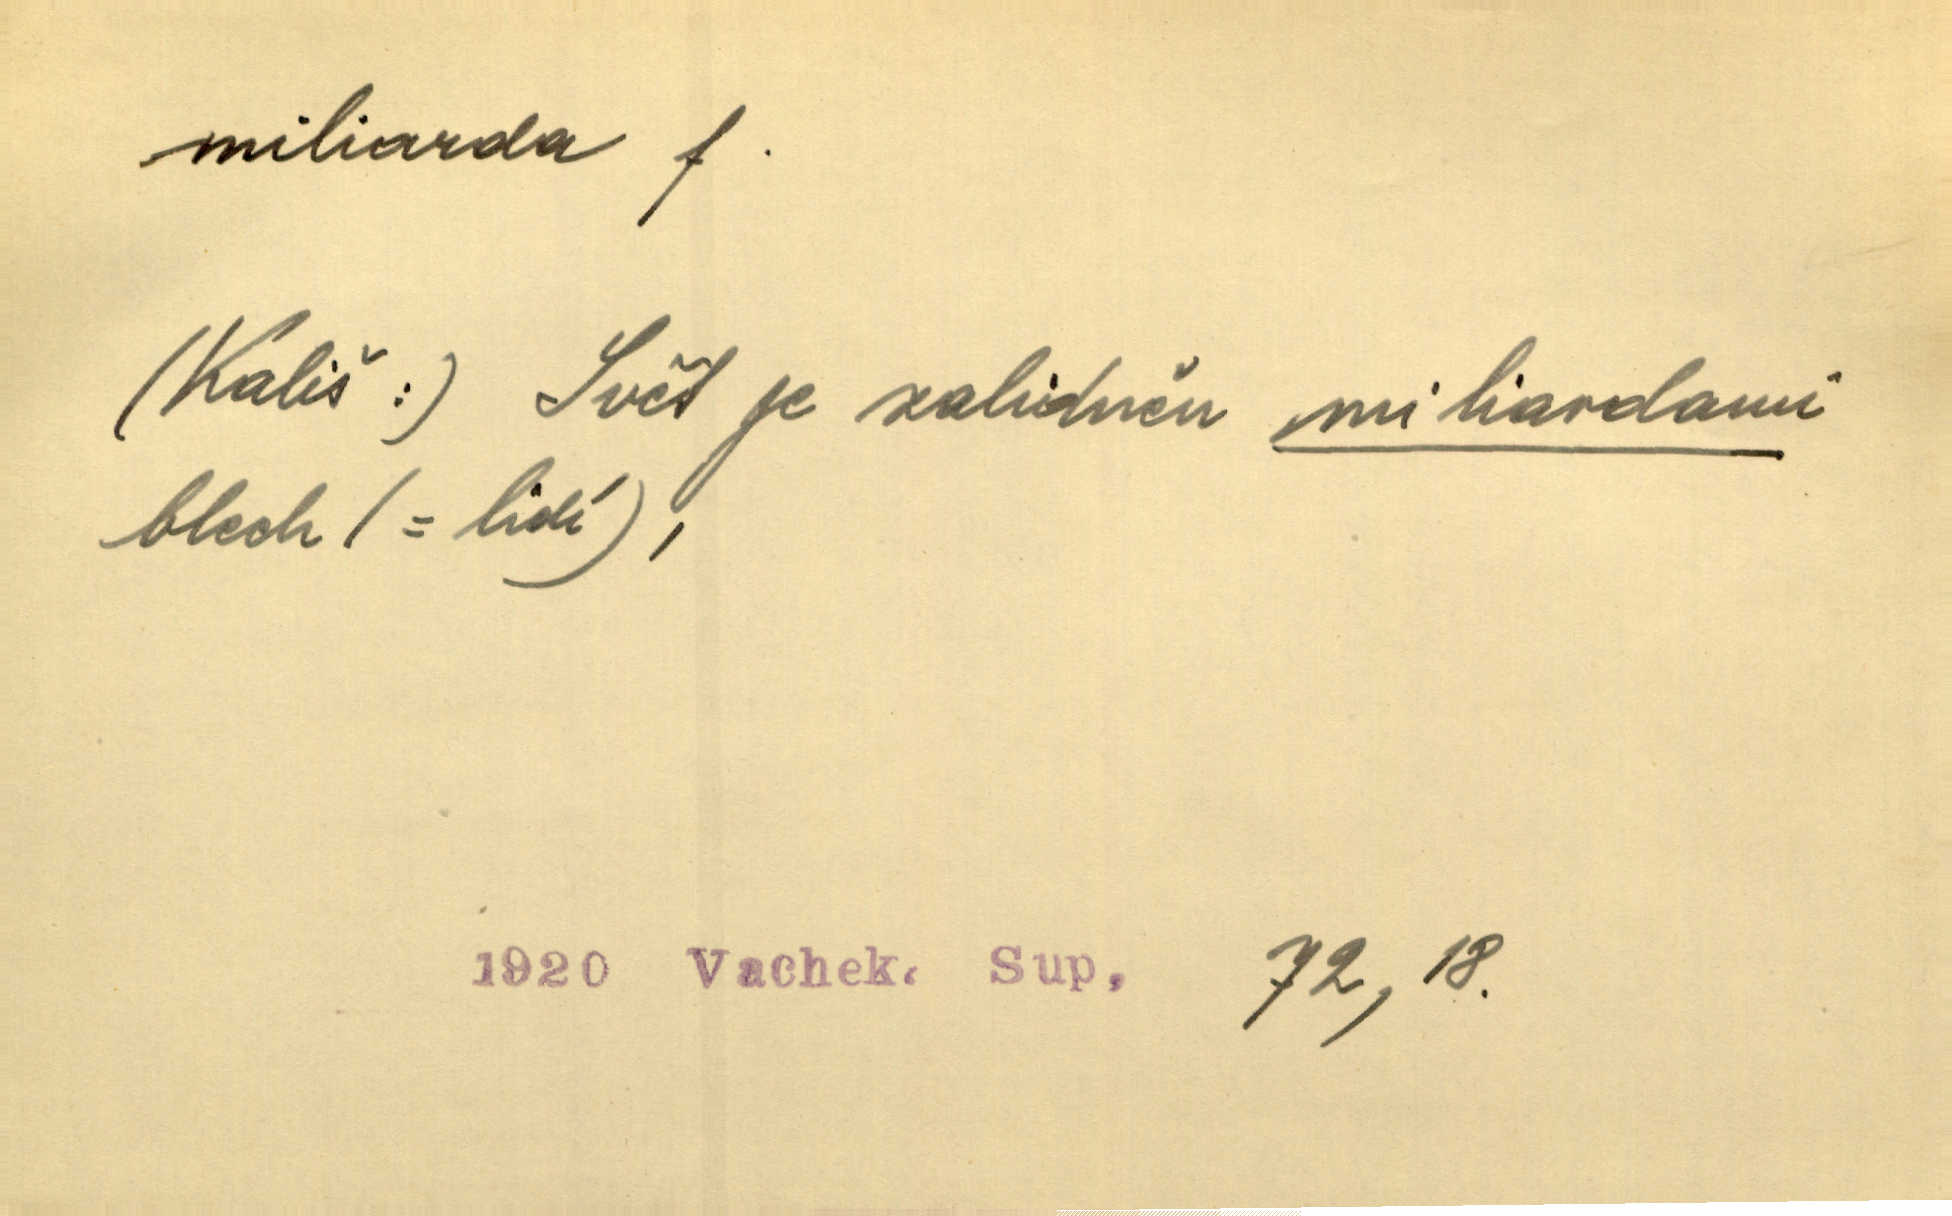 miliarda f.
(Kališ:) Svět je zalidněn miliardami
blech (= lidí),
1920 Vachek. Sup, 72, 18.